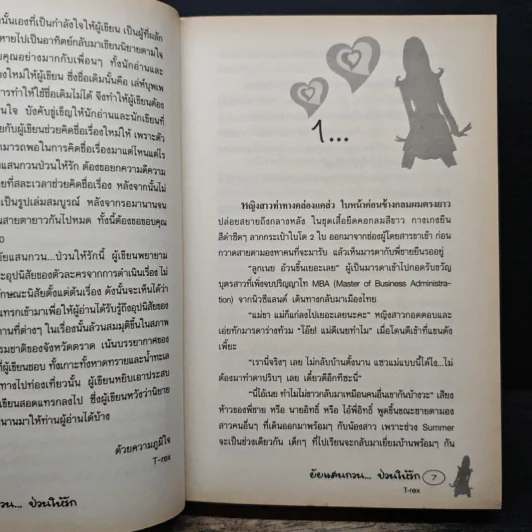 นั้นเองที่เป็นกำลังใจให้ผู้เขียน เป็นผู้ที่ผลัก
หายไปเป็นอาทิตย์กลับมาเขียนนิยายตามใจ
บคุณอย่างมากกับเพื่อนๆ ทั้งนักอ่านและ
องใหม่ให้ผู้เขียน ซึ่งชื่อเดิมนั้นคือ เล่ห์บุพเพ
การทำให้ใช้ชื่อเดิมไม่ได้ จึงทำให้ผู้เขียนต้อง
นใจ บังคับขู่เข็ญให้นักอ่านและนักเขียนที่
ยกับผู้เขียนช่วยคิดชื่อเรื่องใหม่ให้ เพราะตัว
ามารถพอในการคิดชื่อเรื่องมาแต่ไหนแต่ไร
แสนกวนป่วนให้รัก ต้องขอยกความดีความ
ยที่สละเวลาช่วยคิดชื่อเรื่อง หลังจากนั้นไม่
เป็นรูปเล่มสมบูรณ์ หลังจากรอมานานจน
นสายตายาวกันไปหมด ทั้งนี้ต้องขอขอบคุณ
ยัยแสนกวน...ป่วนให้รักนี้ ผู้เขียนพยายาม
ะอุปนิสัยของตัวละครจากการดำเนินเรื่อง ไม่
ักษณะนิสัยตั้งแต่ต้นเรื่อง ดังนั้นจะเห็นได้ว่า
แทรกเข้ามาเพื่อให้ผู้อ่านได้รับรู้ถึงอุปนิสัยของ
านที่ต่างๆ ในเรื่องนั้นล้วนสมมุติขึ้นในสภาพ
รมชาติของจังหวัดตราด เน้นบรรยากาศของ
ที่ผู้เขียนชอบ ทั้งเกาะทั้งหาดทรายและน้ำทะเล
ทางไปท่องเที่ยวนั้น ผู้เขียนหยิบเอาประสบ
เขียนสอดแทรกลงไป ซึ่งผู้เขียนหวังว่านิยาย
นานมาให้ท่านผู้อ่านได้บ้าง
ด้วยความภูมิใจ
T-rex
วน... ป่วนให้รัก
1...
หญิงสาวท่าทางคล่องแคล่ว ใบหน้าค่อนข้างกลมผมตรงยาว
ปล่อยสยายถึงกลางหลัง ในชุดเสื้อยืดคอกลมสีขาว กางเกงยีน
สีดำซีดๆ ลากกระเป๋าใบโต 2 ใบ ออกมาจากช่องผู้โดยสารขาเข้า ก่อน
กวาดสายตามองหาคนที่จะมารับ แล้วเห็นมารดากับพี่ชายยืนรออยู่
“ลูกเนย อ้วนขึ้นเยอะเลย” ผู้เป็นมารดาเข้าไปกอดรับขวัญ
บุตรสาวที่เพิ่งจบปริญญาโท MBA (Master of Business Administra-
tion) จากนิวซีแลนด์ เดินทางกลับมาเมืองไทย
“แม่ขา แม่ก็แก่ลงไปเยอะเลยนะคะ” หญิงสาวกอดตอบและ
เอ่ยทักมารดาร่างท้วม “โอ๊ย! แม่ตีเนยทำไม” เมื่อโดนตีเข้าที่แขนดัง
เพี๊ยะ
“เรานี่จริงๆ เลย ไม่กลับบ้านตั้งนาน แซวแม่แบบนี้ได้ไง...ไม่
ต้องมาทำตาปริบๆ เลย เดี๋ยวตีอีกทีซะนี่”
“นี่ไอ้เนย ทำไมไม่ซาวกลับมาเหมือนคนอื่นเขากันบ้างวะ” เสียง
ห้าวของพี่ชาย หรือ นายอิทธิ์ หรือ ไอ้พี่อิทธิ์ พูดขึ้นขณะชายตามอง
สาวคนอื่นๆ ที่เดินออกมาพร้อมๆ กับน้องสาว เพราะช่วง Summer
จะเป็นช่วงเดียวกัน เด็กๆ ที่ไปเรียนจะกลับมาเยี่ยมบ้านพร้อมๆ กัน
ยัยแสนกวน... ป่วนให้รัก
7
T-rex